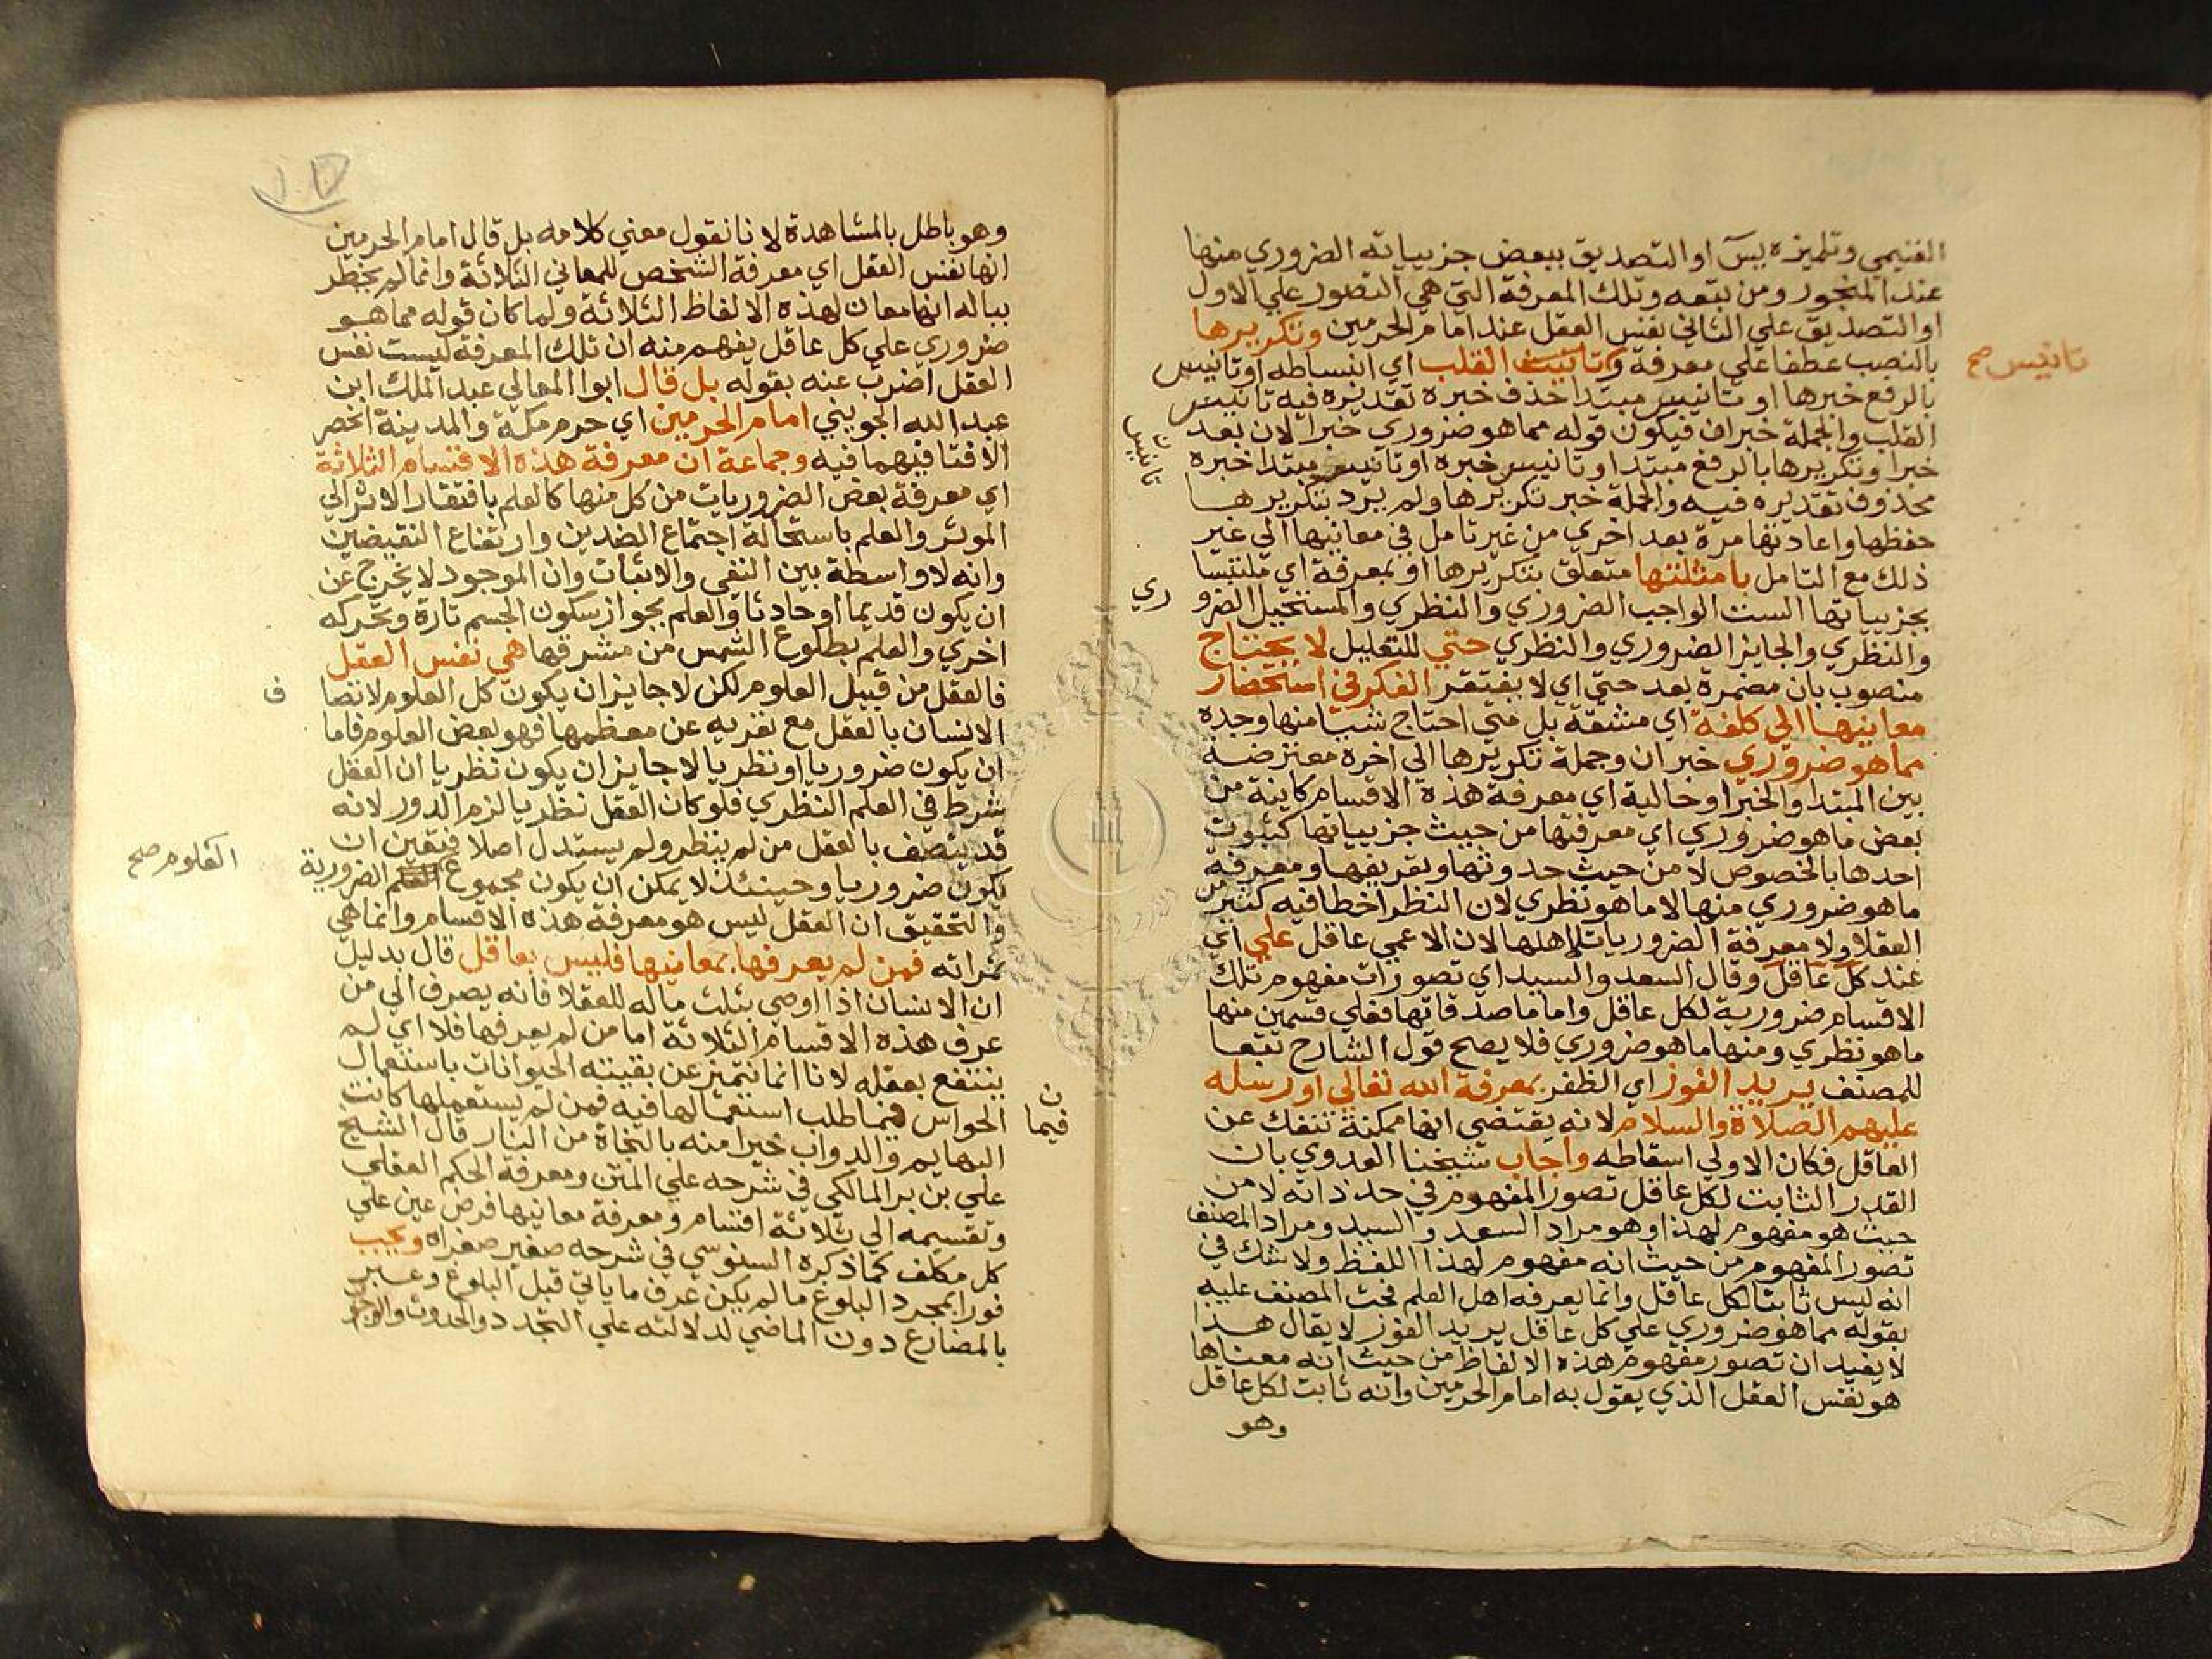 الغنيمي وتلميذه يس او التصديق ببعض جزيياته الضروري منها
عند المنجور ومن تبعه وتلك المعرفة التي هي التصور علي الاول
او التصديق علي الثاني نفس العقل عند امام الحرمين وتكريرها
بالنصب عطفا علي معرفة وتانيث القلب اي انبساطه او تانيس
تانيس صح
بالرفع خبرها او تانيس مبتدا حذف خبره تقديره فيه تانيس
القلب والجملة خبر ان فيكون قوله مما هو ضروري خبرا لان بعد
خبرا وتكريرها بالرفع مبتدا او تانيس خبره او تانيس مبتدا خبره
تانيس
محذوف تقديره فيه والجملة خبر تكريرها ولم يرد بتكريرها
حفظها واعادتها مرة بعد اخري من غير تامل في معانيها الي غير
ذلك مع التامل بامثلتها متعلق بتكريرها او بمعرفة اي ملتبسا
بجزيياتها الست الواجب الضروري والنظري والمستحيل الضرو
ري
والنظري والجايز الضروري والنظري حتي للتعليل لا يحتاج
منصوب بان مضمرة بعد حتي اي لا يفتقر الفكر في استحضار
معانيها الي كلفة اي مشقة بل متي احتاج شيا منها وجده
مما هو ضروري خبر ان وجملة تكريرها الي اخره معترضة
بين المبتدا والخبر او حالية اي معرفة هذه الاقسام كاينة من
بعض ما هو ضروري اي معرفتها من حيث جزيياتها كثبوت
احدها بالخصوص لا من حيث حدوثها وتعريفها ومعرفة
ما هو ضروري منها لا ما هو نظري لان النظر اخطا فيه كثير من
العقلا ولا معرفة الضروريات لاهلها لان الاعمي عاقل علي اي
عند كل عاقل وقال السعد والسيد اي تصورات مفهوم تلك
الاقسام ضرورية لكل عاقل واما ماصدقاتها فعلي قسمين منها
ما هو نظري ومنها ما هو ضروري فلا يصح قول الشارح تبعا
للمصنف يريد الفوز اي الظفر بمعرفة الله تعالي او رسله
عليهم الصلاة والسلام لانه يقتضي انها ممكنة تنفك عن
العاقل فكان الاولي اسقاطه واجاب شيخنا العدوي بان
القدر الثابت لكل عاقل تصور المفهوم في حد ذاته لا من
حيث هو مفهوم لهذا وهو مراد السعد والسيد ومراد المصنف
تصور المفهوم من حيث انه مفهوم لهذا اللفظ ولا شك في
انه ليس ثابتا لكل عاقل وانما يعرفه اهل العلم فحث المصنف عليه
بقوله مما هو ضروري علي كل عاقل يريد الفوز لا يقال هذا
لا يفيد ان تصور مفهوم هذه الالفاظ من حيث انه معناها
هو نفس العقل الذي يقول به امام الحرمين وانه ثابت لكل عاقل
وهو
وهو باطل بالمشاهدة لانا نقول معني كلامه بل قال امام الحرمين
انها نفس العقل اي معرفة الشخص للمعاني الثلاثة وانما لم يخطر
بباله انها معان لهذه الالفاظ الثلاثة ولما كان قوله مما هو
ضروري علي كل عاقل يفهم منه ان تلك المعرفة ليست نفس
العقل اضرب عنه بقوله بل قال ابوا المعالي عبد الملك ابن
عبد الله الجويني امام الحرمين اي حرم مكة والمدينة انحصر
الافتا فيهما فيه وجماعة ان معرفة هذه الاقسام الثلاثة
اي معرفة بعض الضروريات من كل منها كالعلم بافتقار الاثر الي
الموثر والعلم باستحالة اجتماع الضدين وارتفاع النقيضين
وانه لا واسطة بين النفي والاثبات وان الموجود لا يخرج عن
ان يكون قديما او حادثا والعلم بجواز سكون الجسم تارة وتحركه
اخري والعلم بطلوع الشمس من مشرقها هي نفس العقل
فالعقل من قبيل العلوم لكن لا جايز ان يكون كل العلوم لاتصا
ف
الانسان بالعقل مع تعريه عن معظمها فهو بعض العلوم فاما
ان يكون ضروريا او نظريا لا جايز ان يكون نظريا ان العقل
شرط في العلم النظري فلو كان العقل نظريا لزم الدور لانه
قد يتصف بالعقل من لم ينظر ولم يستدل اصلا فتعين ان
يكون ضروريا وحينئذ لا يمكن ان يكون مجموع الضرورية
العلوم صح
والتحقيق ان العقل ليس هو معرفة هذه الاقسام وانما هي
ثمراته فمن لم يعرفها بمعانيها فليس بعاقل قال بدليل
ان الانسان اذا اوصي بثلث ماله للعقلا فانه يصرف الي من
عرف هذه الاقسام الثلاثة اما من لم يعرفها فلا اي لم
ينتفع بعقله لانا انما نتميز عن بقيته الحيوانات باستعمال
الحواس فيما طلب استعمالها فيه فمن لم يستعملها كانت
فيما
البهايم والدواب خيرا منه بالنجاة من النار قال الشيخ
علي بن بر المالكي في شرحه علي المتن ومعرفة الحكم العقلي
وتقسيمه الي ثلاثة اقسام ومعرفة معانيها فرض عين علي
كل مكلف كما ذكره السنوسي في شرحه صغير صغراه ويجب
فورا بمجرد البلوغ ما لم يكن عرف ما ياتي قبل البلوغ وعبر
بالمضارع دون الماضي لدلالته علي التجدد والحدوث